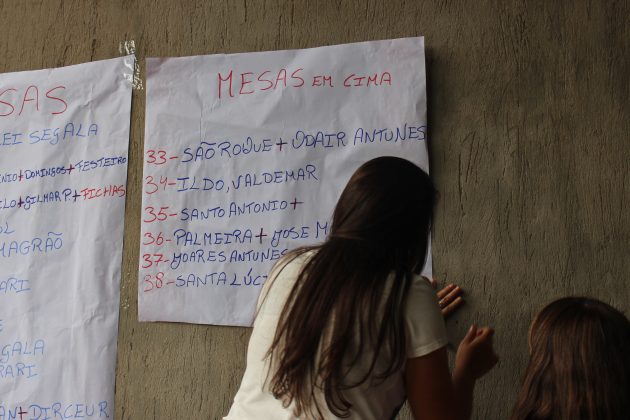 SAS
LEI SEGALA
NIO+DOMINGOS+FESTEIRO
LO+GILMAR P.+FICHAS
MAGRÃO
ARI
GALA
RARI
AN+DIRCEUR
MESAS EM CIMA
33-SÃO ROQUE+ODAIR ANTUNES
34-ILDO, VALDEMAR
35-SANTO ANTONIO+
36-PALMEIRA+JOSE M
37-JOARES ANTUNES
38-SANTA LÚCI